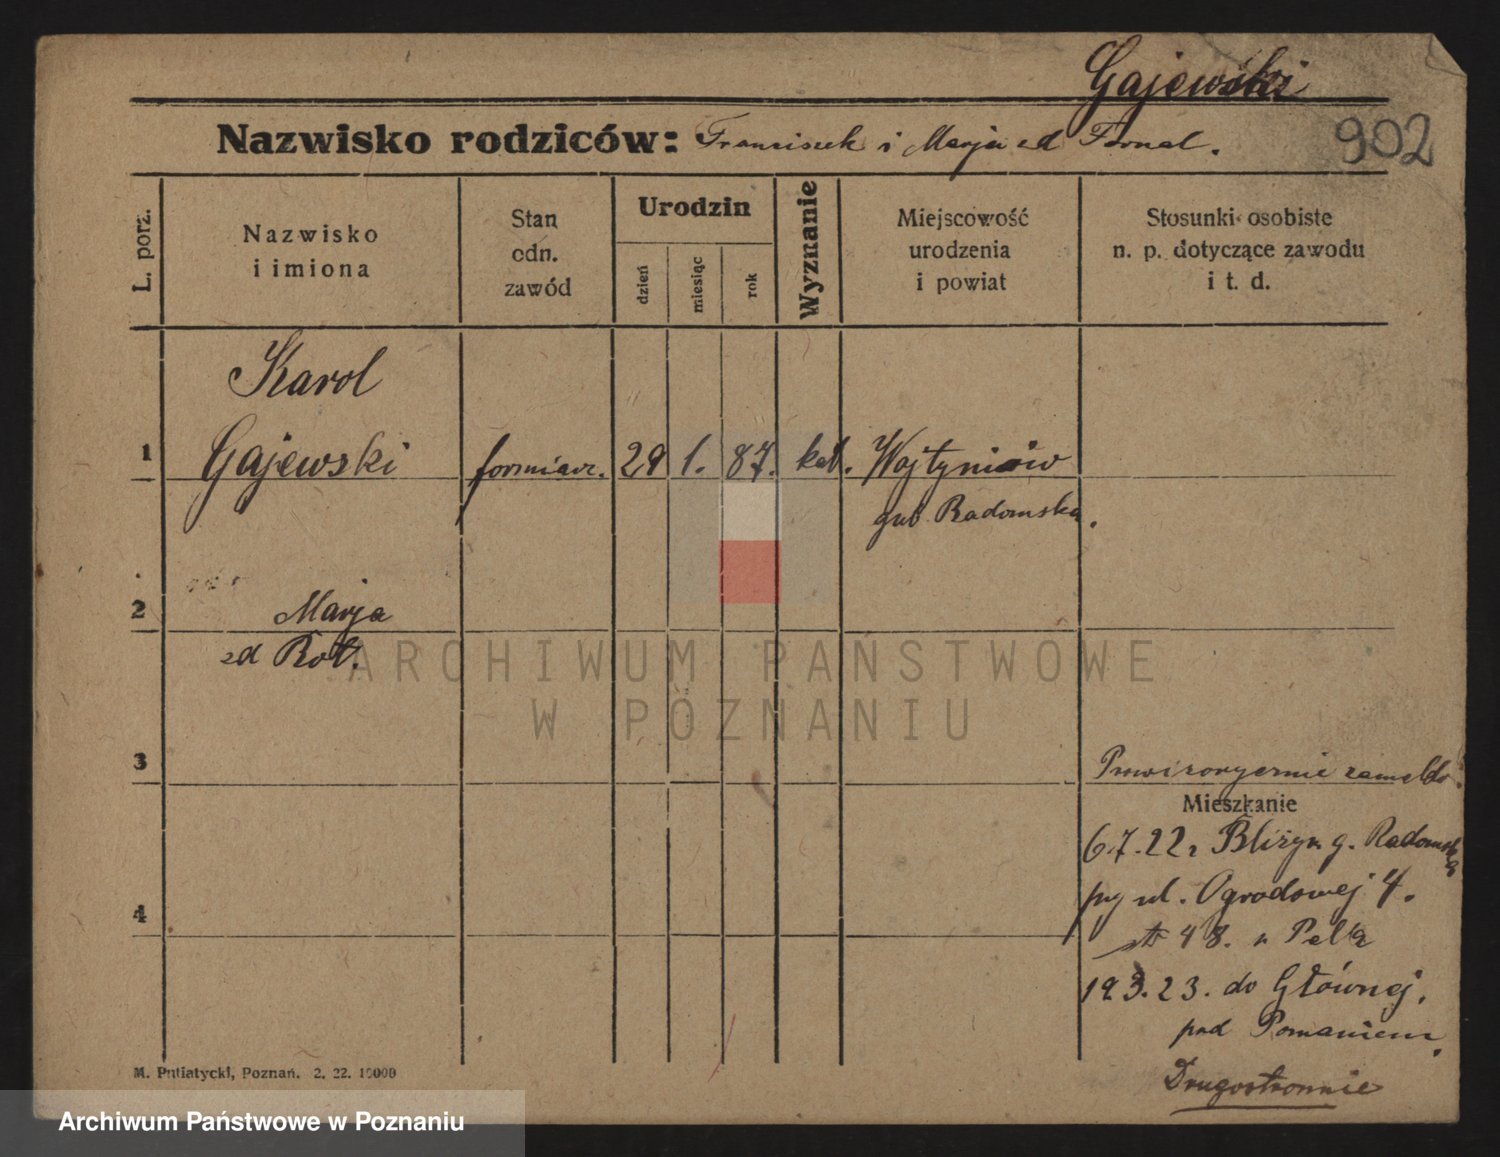 Gajewski
Nazwisko rodziców: Franciszek i Marja zd Fornal.
902
L. porz.
Nazwisko
i imiona
Stan
odn.
zawód
Urodzin
dzień
miesiąc
rok
Wyznanie
Miejscowość
urodzenia
i powiat
Stosunki osobiste
n. p. dotyczące zawodu
i t. d.
Karol
1 Gajewski formierz. 29 1. 87. kat. Wojtyniów
gub. Radomska.
2 Marja
zd Rot.
ARCHIWUM PAŃSTWOWE
W POZNANIU
3
Prowizorycznie zameldo.
Mieszkanie
6.7.22 z Bliżyn g. Radomska
przy ul. Ogrodowej 4.
4
48. u Pelz
19.3.23. do Głównej.
pod Poznaniem.
Drugostronnie
M. Putiatycki, Poznań. 2. 22. 10000
Archiwum Państwowe w Poznaniu